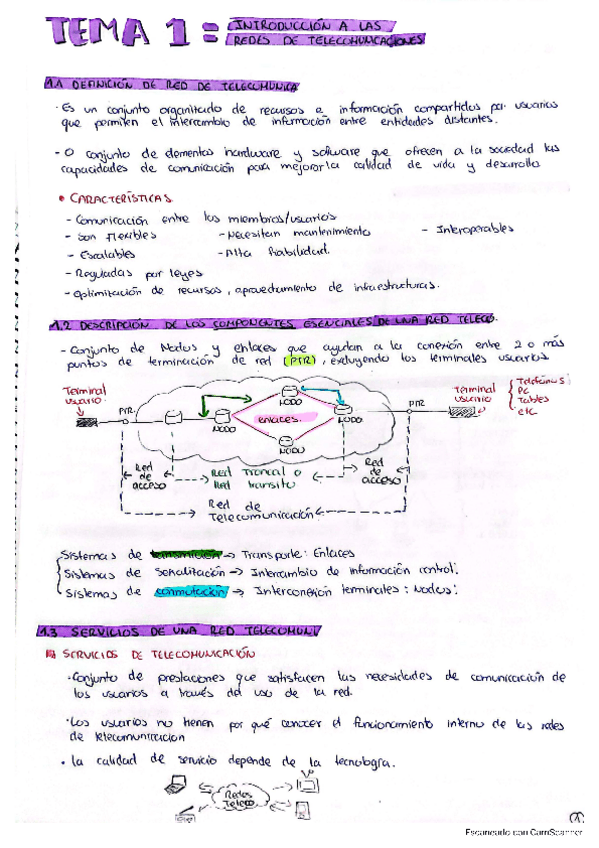 TEMA 1 = INTRODUCCIÓN A LAS
REDES DE TELECOMUNICACIONES
1.1 DEFINICIÓN DE RED DE TELECOMUNICA
· Es un conjunto organizado de recursos e información compartidos por usuarios
que permiten el intercambio de información entre entidades distantes.
- O conjunto de elementos hardware y software que ofrecen a la sociedad las
capacidades de comunicación para mejorar la calidad de vida y desarrollo
• CARACTERÍSTICAS
- Comunicación entre los miembros/usuarios
- Son flexibles - Necesitan mantenimiento - Interoperables
- Escalables - Alta fiabilidad.
- Reguladas por leyes
- Optimización de recursos, aprovechamiento de infraestructuras.
1.2 DESCRIPCIÓN DE LOS COMPONENTES ESENCIALES DE UNA RED TELECO.
- Conjunto de Nodos y enlaces que ayudan a la conexión entre 2 o más
puntos de terminación de red (PTR), excluyendo los terminales usuarios
Terminal
usuario.
PTR
NODO
NODO
enlaces.
NODO
NODO
PTR
Terminal
usuario
Teléfonos
PC
Tables
etc
Red
de
acceso
Red Troncal o
Red transito
Red
de
acceso
Red de
Telecomunicación
Sistemas de transmisión → Transporte: Enlaces
Sistemas de Señalización → Intercambio de información control.
Sistemas de conmutación → Interconexión terminales: Nodos:
1.3 SERVICIOS DE UNA RED TELECOMUNI
SERVICIOS DE TELECOMUNICACIÓN
· Conjunto de prestaciones que satisfacen las necesidades de comunicación de
los usuarios a través del uso de la red.
· Los usuarios no tienen por qué conocer el funcionamiento interno de las redes
de telecomunicacion
· la calidad de servicio depende de la tecnología.
Redes
Teleco
1
Escaneado con CamScanner